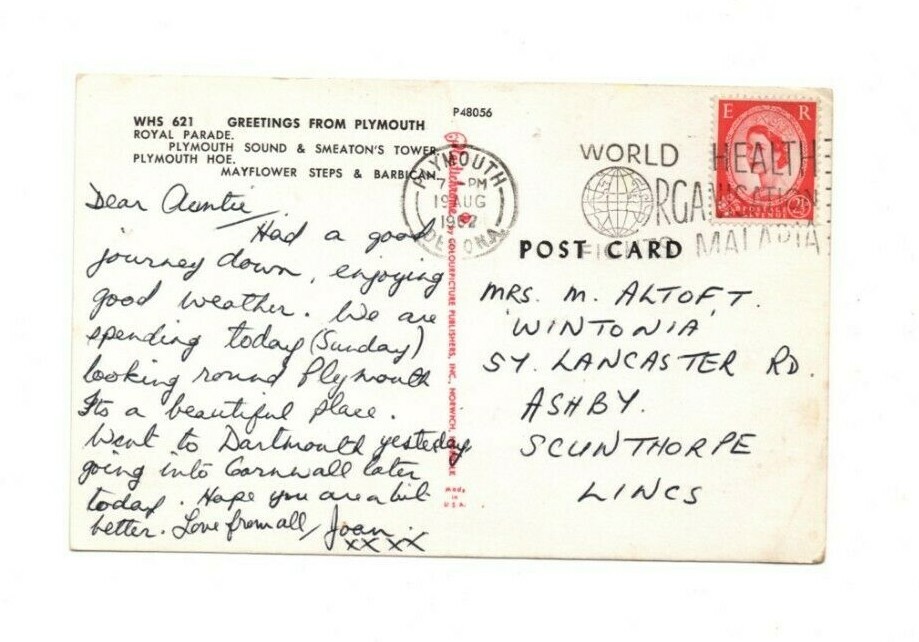 WHS 621 GREETINGS FROM PLYMOUTH
ROYAL PARADE.
PLYMOUTH SOUND & SMEATON'S TOWER
PLYMOUTH HOE.
MAYFLOWER STEPS & BARBICAN.
Dear Auntie,
Had a good
journey down, enjoying
good weather. We are
spending today (Sunday)
looking round Plymouth
Its a beautiful place.
Went to Dartmouth yesterday
going into Cornwall later
today. Hope you are a bit
better. Love from all, Joan.
xx xx
P48056
by COLOURPICTURE PUBLISHERS, INC., NORWICH,
Made
in
U.S.A.
PLYMOUTH
PM
19 AUG
1962
DEVON
WORLD HEALTH
ORGANISATION
MALARIA
E R
POSTAGE
REVENUE
POST CARD
MRS. M. ALTOFT.
'WINTONIA'
54. LANCASTER RD.
ASHBY.
SCUNTHORPE
LINCS